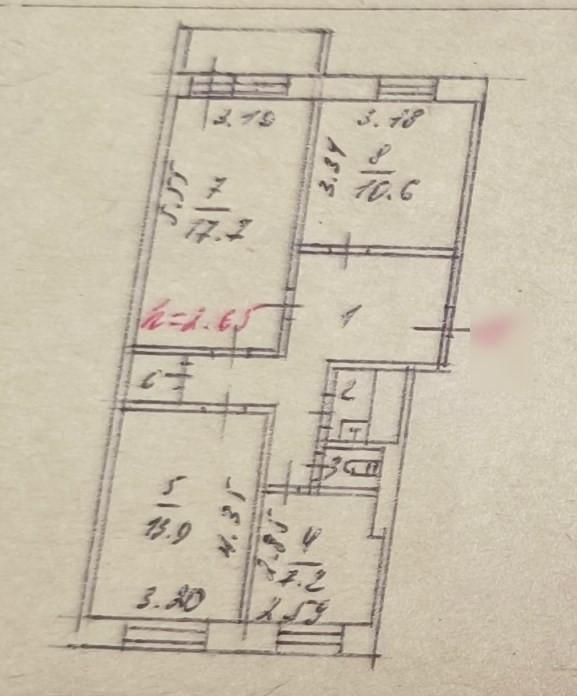 3.19
3.18
5.55
7
17.7
3.34
8
10.6
h=2.65
1
6
2
3
5
13.9
4.35
3.20
2.85
4
7.2
2.59